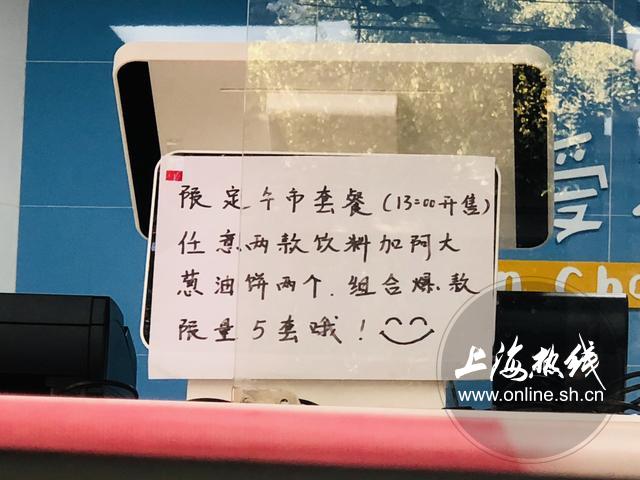 限定午市套餐(13:00开售)
任意两款饮料加阿大
葱油饼两个.组合爆款
限量5套哦!
n Cha
上海热线
www.online.sh.cn